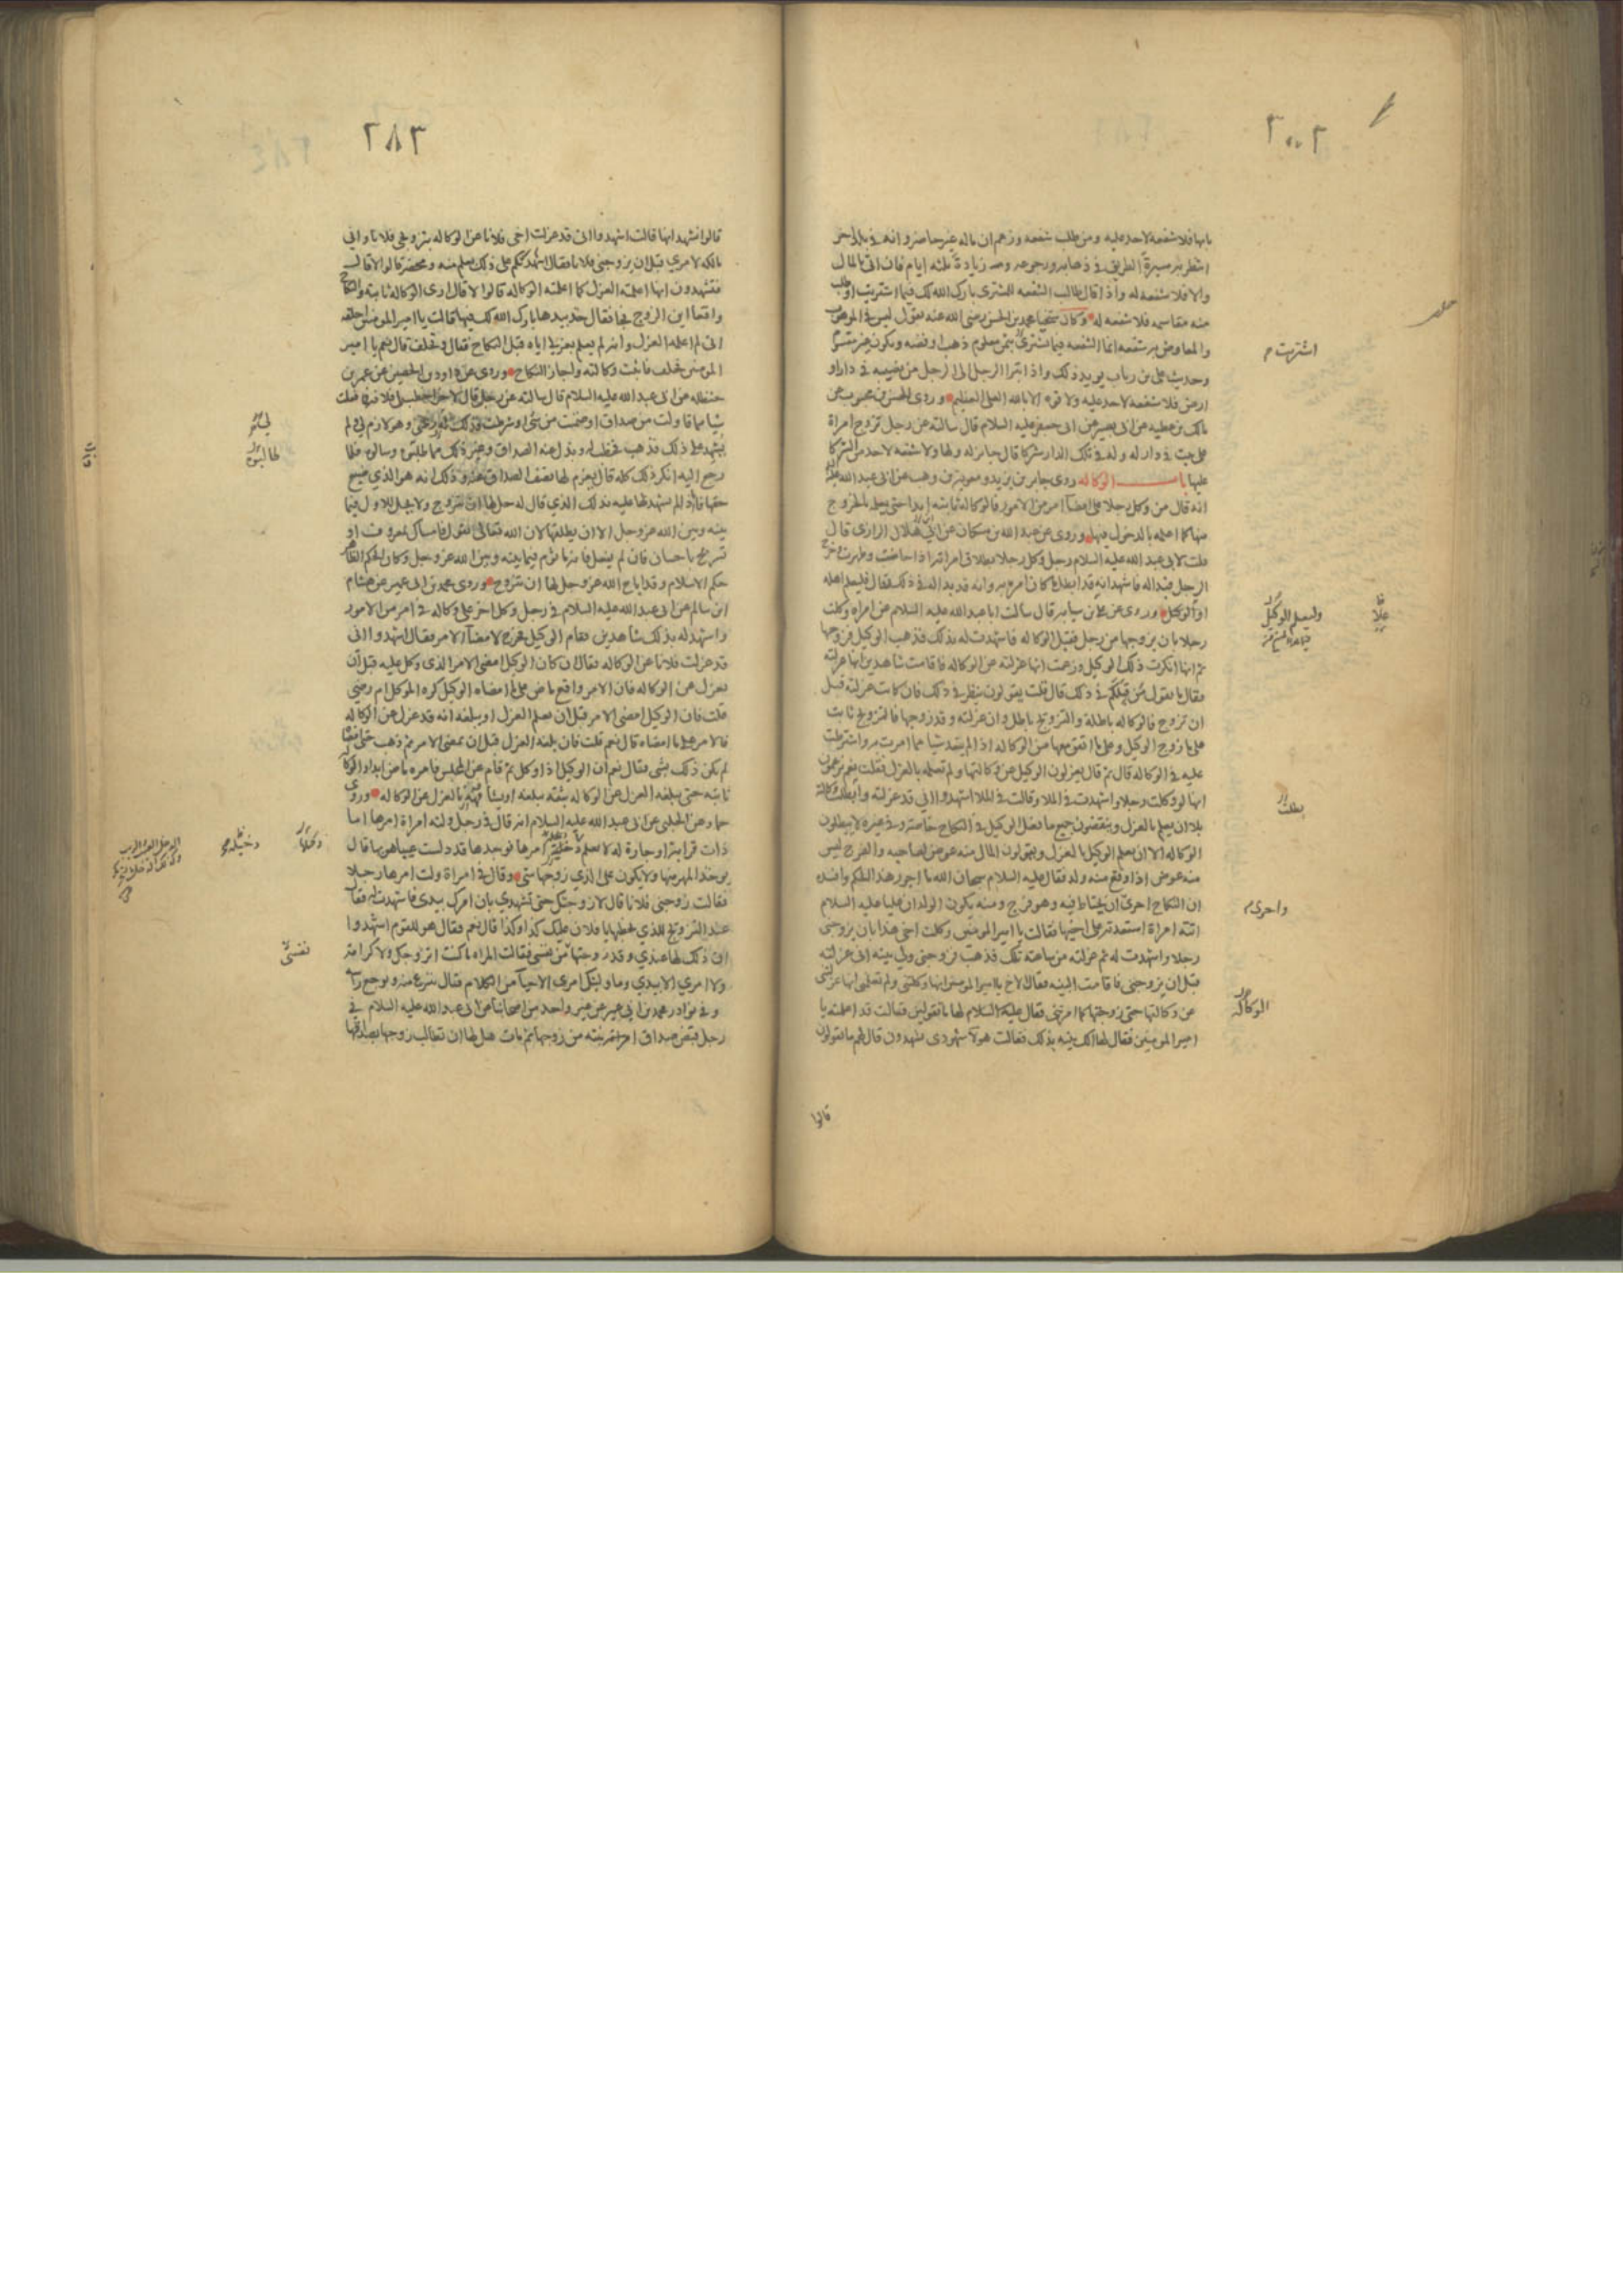 بابها فلا شفعه لاحد عليه ومن طلب شفعه وزعم ان ماله غير حاضر وانه في بلد اخر
انتظر به مسيرة الطريق في ذهابه ورجوعه وزيادة ثلثه ايام فان اتى بالمال
والا فلا شفعه له واذا قال طالب الشفعه للمشترى بارك الله لك فيما اشتريت او طلب
منه مقاسمه فلا شفعه له وكان شيخنا محمد بن الحسن رضى الله عنه يقول ليس في الموهوب
والمعاوض به شفعه انما الشفعه فيما اشترى بثمن معلوم ذهب او فضه ويكون غير مقسوم
وحديث على بن رياب يويد ذلك واذا تبرا الرجل الى الرجل من نصيبه في دار او
ارض فلا شفعه لاحد عليه ولا قوه الا بالله العلى العظيم وروى الحسن بن محبوب عن
مالك بن عطيه عن ابى بصير عن ابى جعفر عليه السلام قال سالته عن رجل تزوج امراة
على بيت في دار له وله في تلك الدار شركا قال جايز له ولها ولا شفعه لاحد من الشركا
عليها باب الوكاله روى جابر بن يزيد ومعوية بن وهب عن ابى عبد الله عليه
انه قال من وكل رجلا على امضآ امر من الامور فالوكاله ثابته ابدا حتى يعلمه بالخروج
منها كما اعلمه بالدخول فيها وروى عن عبد الله بن مسكان عن ابى هلال الرازى قال
قلت لابى عبد الله عليه السلام رجل وكل رجلا بطلاق امراته اذا حاضت وطهرت وخرج
الرجل فبدا له فاشهد انه قد ابطل ما كان امره به وانه قد بدا له في ذلك فقال فليعلم اهله
او الوكيل وروى عن على بن سيابه قال سالت ابا عبد الله عليه السلام عن امراه وكلت
رجلا بان يزوجها من رجل فقبل الوكاله فاشهدت له بذلك فذهب الوكيل فزوجها
ثم انها انكرت ذلك الوكيل وزعمت انها عزلته عن الوكاله فاقامت شاهدين انها عزلته
فقال ما يقول من قبلكم في ذلك قال قلت يقولون ينظر في ذلك فان كانت عزلته قبل
ان تزوج فالوكاله باطلة والتزويج باطل وان عزلته وقد زوجها فالتزويج ثابت
على ما زوج الوكيل وعلى ما اتفق معها من الوكاله اذا لم يتعد شيا مما امرت به واشترطت
عليه في الوكاله قال ثم قال يعزلون الوكيل عن وكالتها ولم تعلمه بالعزل فقلت نعم يزعمون
انها لو وكلت رجلا واشهدت في الملا وقالت في الملا اشهدوا انى قد عزلته وابطلت وكالته
بلا ان يعلم بالعزل وينقضون جميع ما فعل الوكيل في النكاح خاصه وفي غيره لا يبطلون
الوكاله الا ان يعلم الوكيل بالعزل ويقولون المال منه عوض لصاحبه والفرج ليس
منه عوض اذا وقع منه ولد فقال عليه السلام سبحان الله ما اجور هذا الحكم وافسده
ان النكاح احرى ان يحتاط فيه وهو فرج ومنه يكون الولد ان عليا عليه السلام
اتته امراة استعدته على اخيها فقالت يا امير المومنين وكلت اخى هذا بان يزوجنى
رجلا واشهدت له ثم عزلته من ساعته تلك فذهب فزوجنى ولى بينه انى عزلته
قبل ان يزوجنى فاقامت البينه فقال الاخ يا امير المومنين انها وكلتنى ولم تعلمنى انها عزلتنى
عن وكالتها حتى زوجتها كما امرتنى فقال عليه السلام لها ما تقولين فقالت قد اعلمته يا
امير المومنين فقال لها الك بينه بذلك فقالت هولآ شهودى يشهدون قال لهم ما تقولون
قالوا
اشتريت
وليعلم الوكيل
بطلت
واحرى
الوكاله
٢٨٣
قالوا نشهد انها قالت اشهدوا انى قد عزلت اخى فلانا عن الوكاله بتزويجى فلانا وانى
مالكه لامرى قبل ان يزوجنى فلانا فقال اشهدتكم على ذلك بعلم منه ومحضر قالوا لا قال
فتشهدون انها اعلمته العزل كما اعلمته الوكاله قالوا لا قال ارى الوكاله ثابته والنكاح
واقعا اين الزوج فجا فقال خذ بيدها بارك الله لك فيها فقالت يا امير المومنين احلفه
انى لم اعلمه العزل وانه لم يعلم بعزلى اياه قبل النكاح فقال وتحلف قال نعم يا امير
المومنين فحلف فاثبت وكالته واجاز النكاح وروى عن داود بن الحصين عن عمر بن
حنظله عن ابى عبد الله عليه السلام قال سالته عن رجل قال لاخر اخطب لى فلانه فما فعلت
شيا مما قاولت من صداق او ضمنت من شى او شرطت فذلك لى رضى وهو لازم لى ولم
يشهد على ذلك فذهب فخطب له وبذل عنه الصداق وغير ذلك مما طلبوا وسالوه فلما
رجع اليه انكر ذلك كله قال يغرم لها نصف الصداق عنه وذلك انه هو الذى ضيع
حقها فاذ لم يشهد لها عليه بذلك الذى قال له حل لها ان تتزوج ولا يحل للاول فيما
بينه وبين الله عز وجل الا ان يطلقها لان الله تعالى يقول فامساك بمعروف او
تسريح باحسان فان لم يفعل فانه ماثوم فيما بينه وبين الله عز وجل وكان الحكم الظاهر
حكم الاسلام وقد اباح الله عز وجل لها ان تتزوج وروى محمد بن ابى عمير عن هشام
ابن سالم عن ابى عبد الله عليه السلام في رجل وكل اخر على وكاله في امر من الامور
واشهد له بذلك شاهدين فقام الوكيل فخرج لامضآ الامر فقال اشهدوا انى
قد عزلت فلانا عن الوكاله فقال ان كان الوكيل امضى الامر الذى وكل عليه قبل ان
يعزل عن الوكاله فان الامر واقع ماض على ما امضاه الوكيل كره الموكل ام رضى
قلت فان الوكيل امضى الامر قبل ان يعلم العزل او يبلغه انه قد عزل عن الوكاله
فالامر على ما امضاه قال نعم قلت فان بلغه العزل قبل ان يمضى الامر ثم ذهب حتى امضاه
لم يكن ذلك بشى فقال نعم ان الوكيل اذا وكل ثم قام عن المجلس فامره ماض ابدا والوكاله
ثابته حتى يبلغه العزل عن الوكاله بثقه يبلغه او يشافهه بالعزل عن الوكاله وروى
حماد عن الحلبى عن ابى عبد الله عليه السلام انه قال في رجل ولته امراة امرها اما
ذات قرابة او جارة له لا يعلم دخيلة امرها فوجدها قد دلست عيبا هو بها قال
يوخذ المهر منها ولا يكون على الذى زوجها شى وقال في امراة ولت امرها رجلا
فقالت زوجنى فلانا قال لا زوجتك حتى تشهدى بان امرك بيدى فاشهدت له فقال
عند التزويج للذى يخطبها يا فلان عليك كذا وكذا قال نعم فقال هو للقوم اشهدوا
ان ذلك لها عندى وقد زوجتها من نفسى فقالت المراه ما كنت اتزوجك ولا كرامة
ولا امرى الا بيدى وما وليتك امرى الا حيآ من الكلام قال تنزع منه ويوجع راسه
وفي نوادر محمد بن ابى عمير عن غير واحد من اصحابنا عن ابى عبد الله عليه السلام في
رجل قبض صداق ابنته من زوجها ثم مات هل لها ان تطالب زوجها بصداقها
طالبوه
نفسى